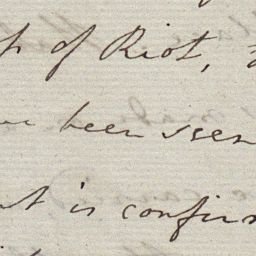 of Riot,
been seen
is confir